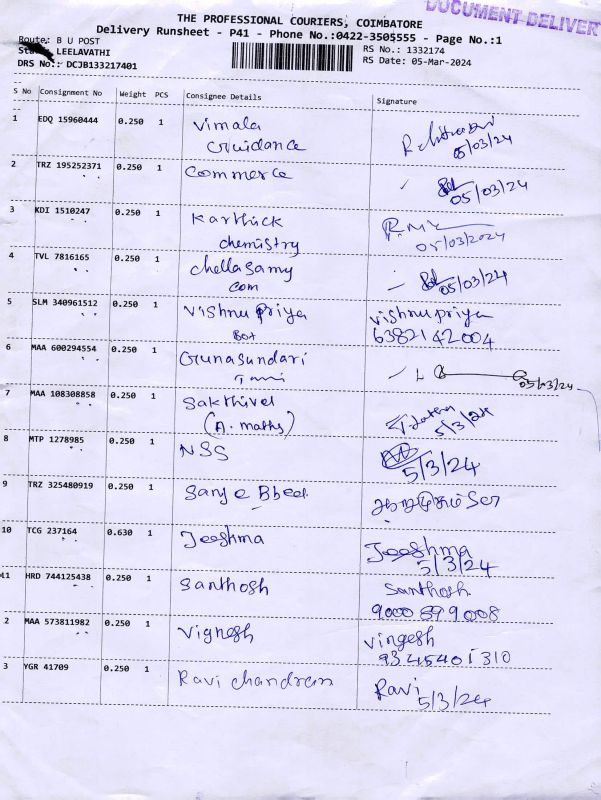 DOCUMENT DELIVER
THE PROFESSIONAL COURIERS, COIMBATORE
Delivery Runsheet - P41 - Phone No.:0422-3505555 - Page No.:1
Route: B U POST
RS No.: 1332174
LEELAVATHI
RS Date: 05-Mar-2024
DRS No.: DCJB133217401
S No Consignment No Weight PCS Consignee Details Signature
1 EDQ 15960444 0.250 1 Vimala
Guidance
05/03/24
2 TRZ 195252371 0.250 1 Commerce
05/03/24
3 KDI 1510247 0.250 1 Karthick
chemistry
05/03/2024
4 TVL 7816165 0.250 1 chellasamy
com
05/03/24
5 SLM 340961512 0.250 1 Vishnu Priya Vishnu priya
Bot 6382142004
6 MAA 600294554 0.250 1 Gunasundari
05/03/24
7 MAA 108308858 0.250 1 Sakthivel
(A. maths) 5/3/24
8 MTP 1278985 0.250 1 NSS
5/3/24
9 TRZ 325480919 0.250 1
10 TCG 237164 0.630 1 Jeeshma Jeeshma
5/3/24
11 HRD 744125438 0.250 1 Santhosh Santhosh
2 MAA 573811982 0.250 1 Vignesh Vingesh
9345401310
3 YGR 41709 0.250 1 Ravi chandran Ravi
5/3/24